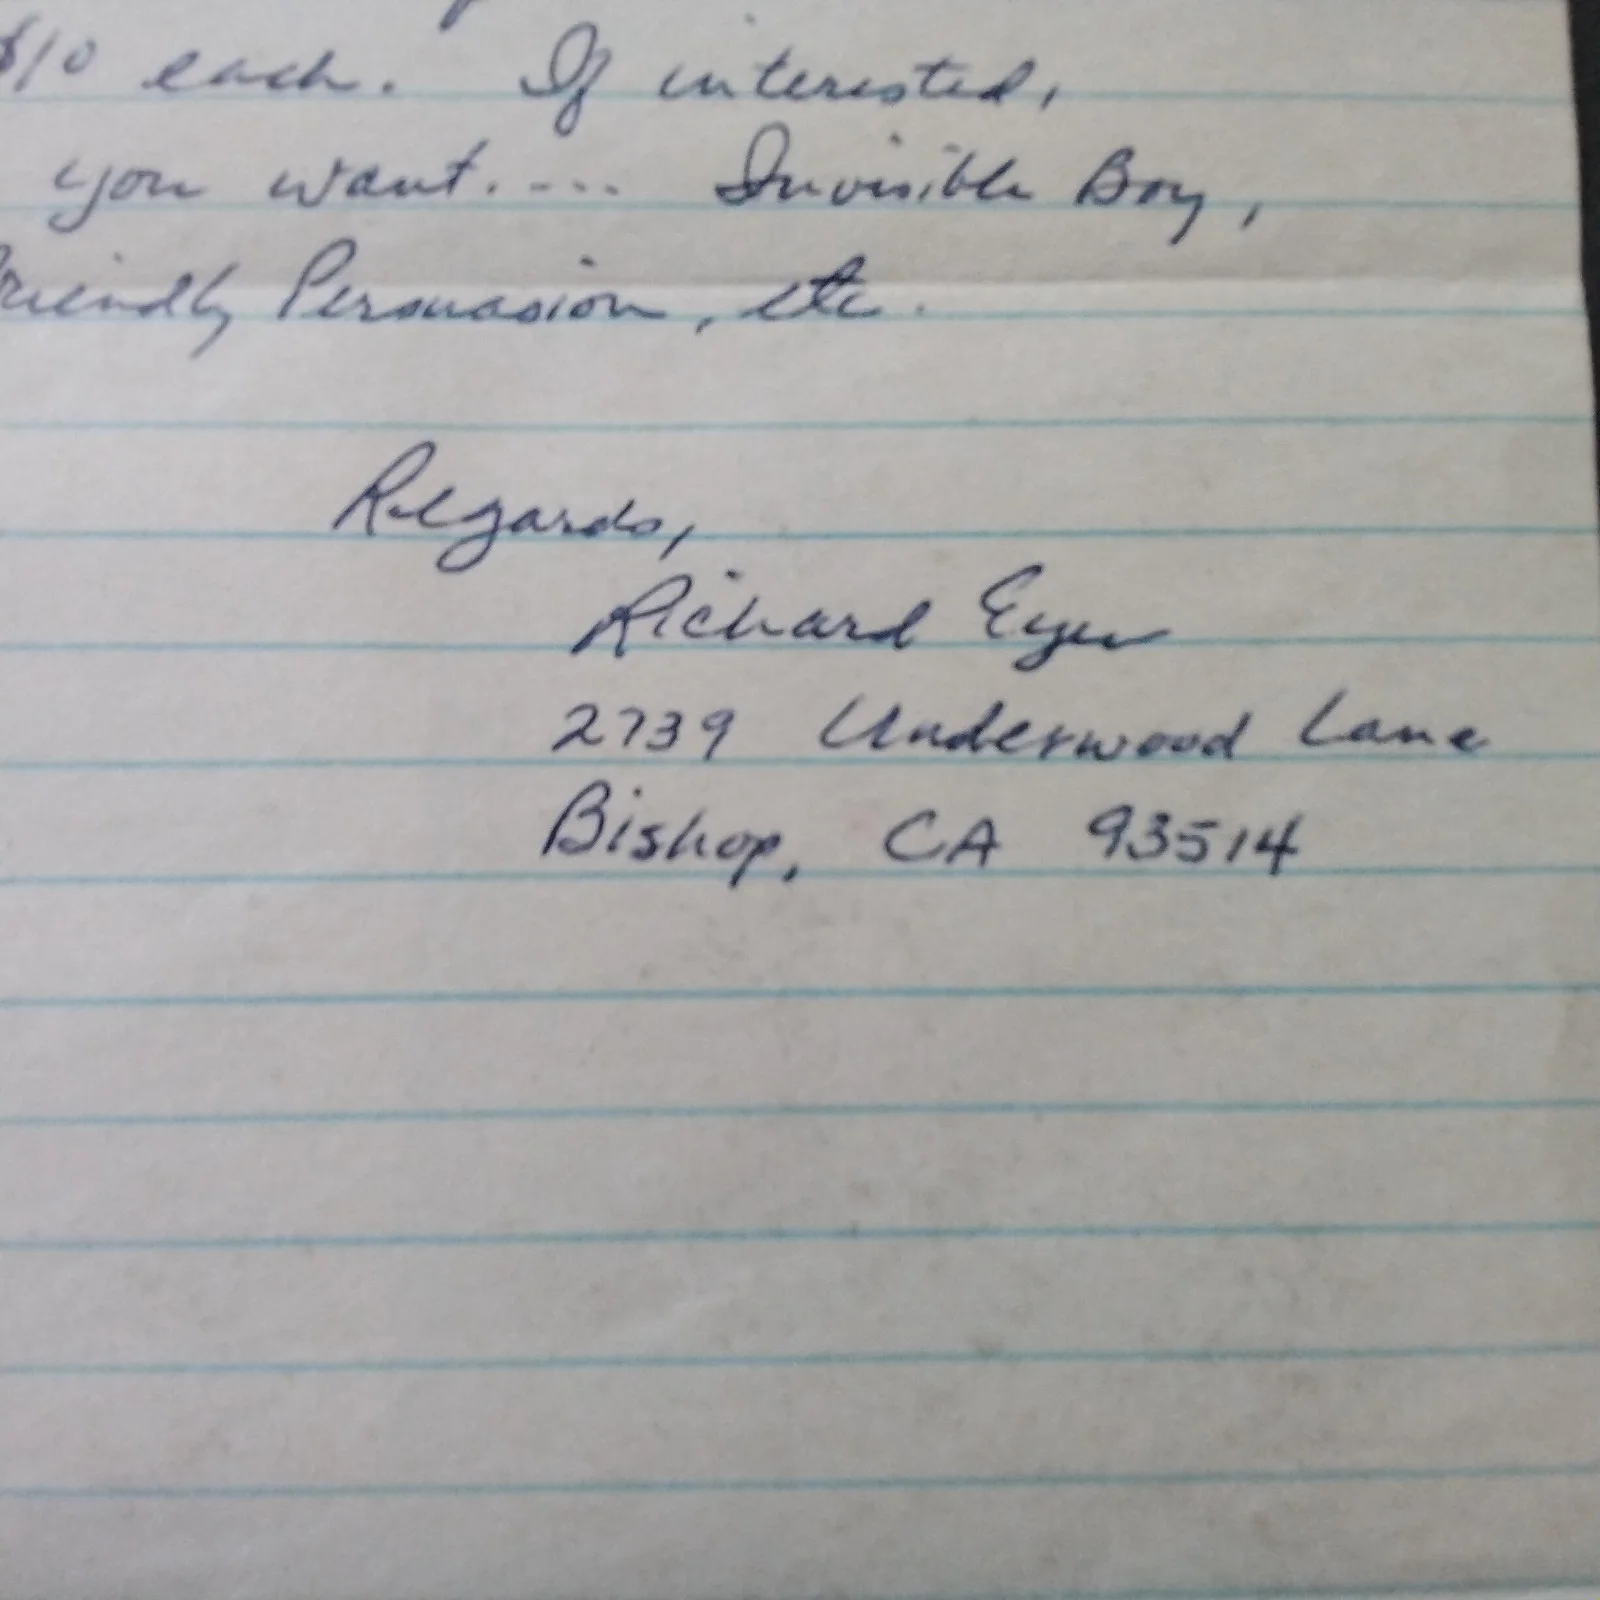 $10 each. If interested,
you want. .... Invisible Boy,
Friendly Persuasion, etc.
Regards,
Richard Eyer
2739 Underwood Lane
Bishop, CA 93514